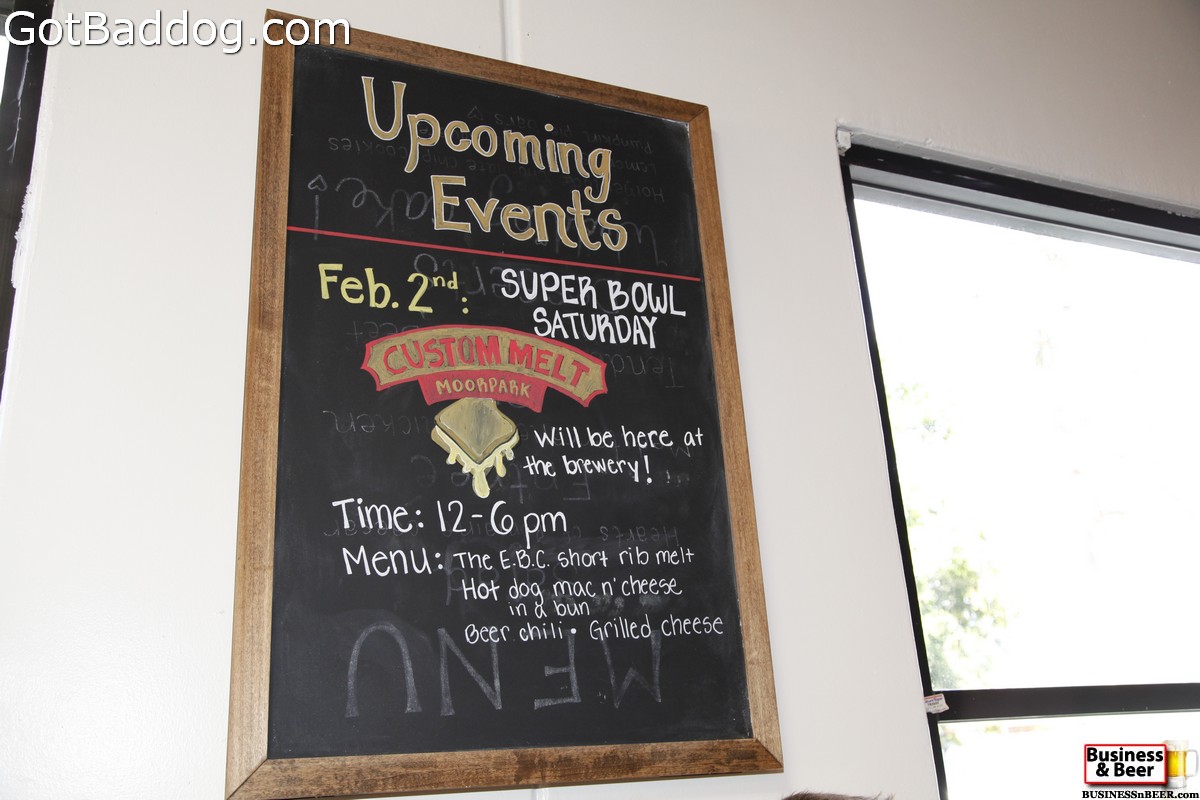 GotBaddog.com
Upcoming
Events
Feb. 2nd: SUPER BOWL
SATURDAY
CUSTOM MELT
MOORPARK
will be here at
the brewery!
Time: 12-6 pm
Menu: The E.B.C. short rib melt
Hot dog mac n' cheese
in a bun
Beer chili • Grilled cheese
MENU
Business
& Beer
BUSINESSnBEER.com